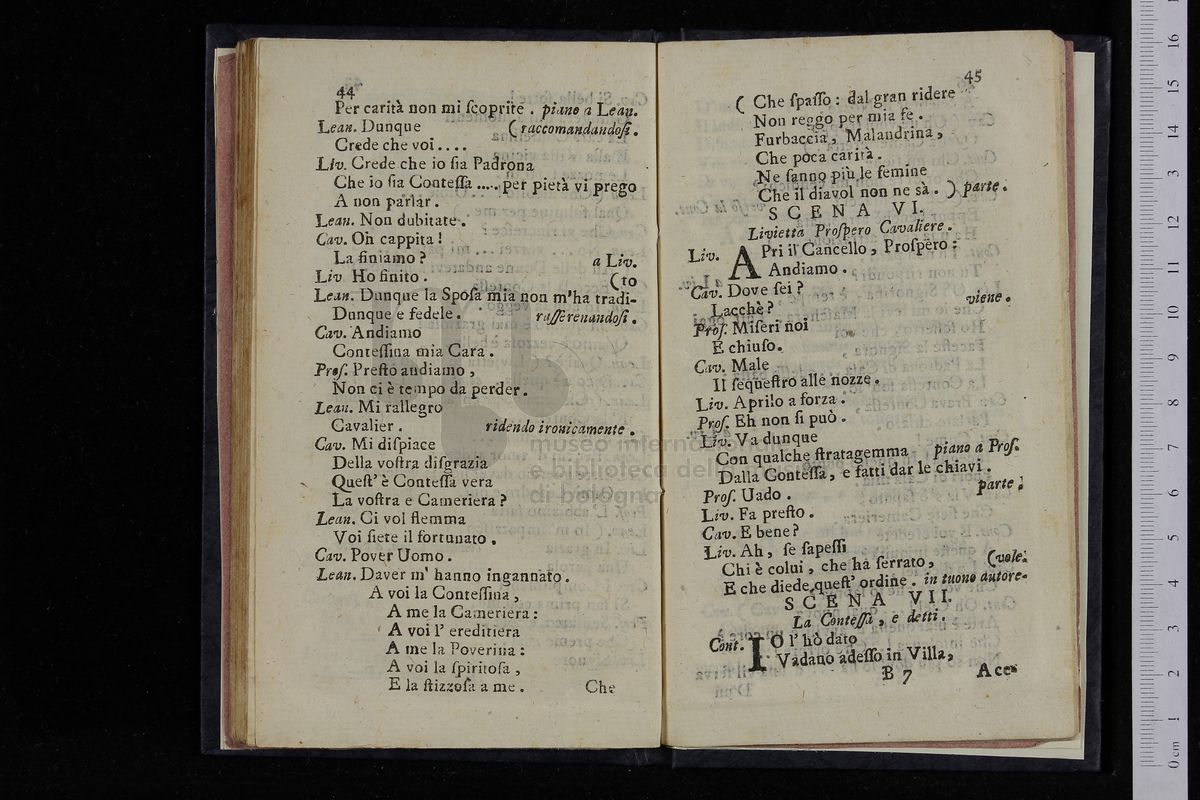 44
Per carità non mi ſcoprite . piano a Lean.
Lean. Dunque (raccomandandoſi .
Crede che voi ....
Liv. Crede che io ſia Padrona
Che io ſia Conteſſa ..... per pietà vi prego
A non parlar .
Lean. Non dubitate .
Cav. Oh cappita !
La finiamo ? a Liv.
Liv Ho finito . (to
Lean. Dunque la Spoſa mia non m'ha tradi-
Dunque e fedele . raſſerenandoſi .
Cav. Andiamo
Conteſſina mia Cara .
Proſ. Preſto andiamo ,
Non ci è tempo da perder .
Lean. Mi rallegro
Cavalier . ridendo ironicamente .
Cav. Mi diſpiace
Della voſtra diſgrazia
Queſt' è Conteſſa vera
La voſtra e Cameriera ?
Lean. Ci vol flemma
Voi ſiete il fortunato .
Cav. Pover Uomo .
Lean. Daver m' hanno ingannato .
A voi la Conteſſina ,
A me la Cameriera :
A voi l' ereditiera
A me la Poverina :
A voi la ſpiritoſa ,
E la ſtizzoſa a me . Che
45
( Che ſpaſſo : dal gran ridere
Non reggo per mia fe .
Furbaccia , Malandrina ,
Che poca carità .
Ne ſanno più le femine
Che il diavol non ne sà . ) parte .
SCENA VI.
Livietta Proſpero Cavaliere .
Liv. APri il Cancello , Proſpero :
Andiamo .
Cav. Dove ſei ?
Lacchè ? viene .
Proſ. Miſeri noi
E chiuſo .
Cav. Male
Il ſequeſtro alle nozze .
Liv. Aprilo a forza .
Proſ. Eh non ſi può .
Liv. Va dunque
Con qualche ſtratagemma piano a Proſ.
Dalla Conteſſa , e fatti dar le chiavi .
Proſ. Uado . parte .
Liv. Fa preſto .
Cav. E bene ?
Liv. Ah , ſe ſapeſſi
Chi è colui , che hà ſerrato , (vole.
E che diede queſt' ordine . in tuono autore-
SCENA VII.
La Conteſſa , e detti .
Cont. IO l' hò dato
Vadano adeſſo in Villa ,
B 7 Ace-
museo internazionale
e biblioteca della musica
di bologna
0 cm 1 2 3 4 5 6 7 8 9 10 11 12 13 14 15 16